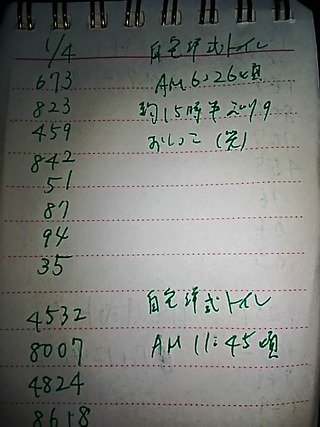 1/4 自宅洋式トイレ
673 AM 6:26頃
823 約15時半ぶりの
459 おしっこ
842
51
87
94
35
4532 自宅洋式トイレ
8007 AM 11:45頃
4824
8618